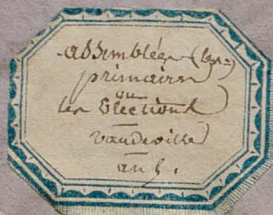 assemblées (les)
primaires
ou
les Elections
vaudeville
an 5.